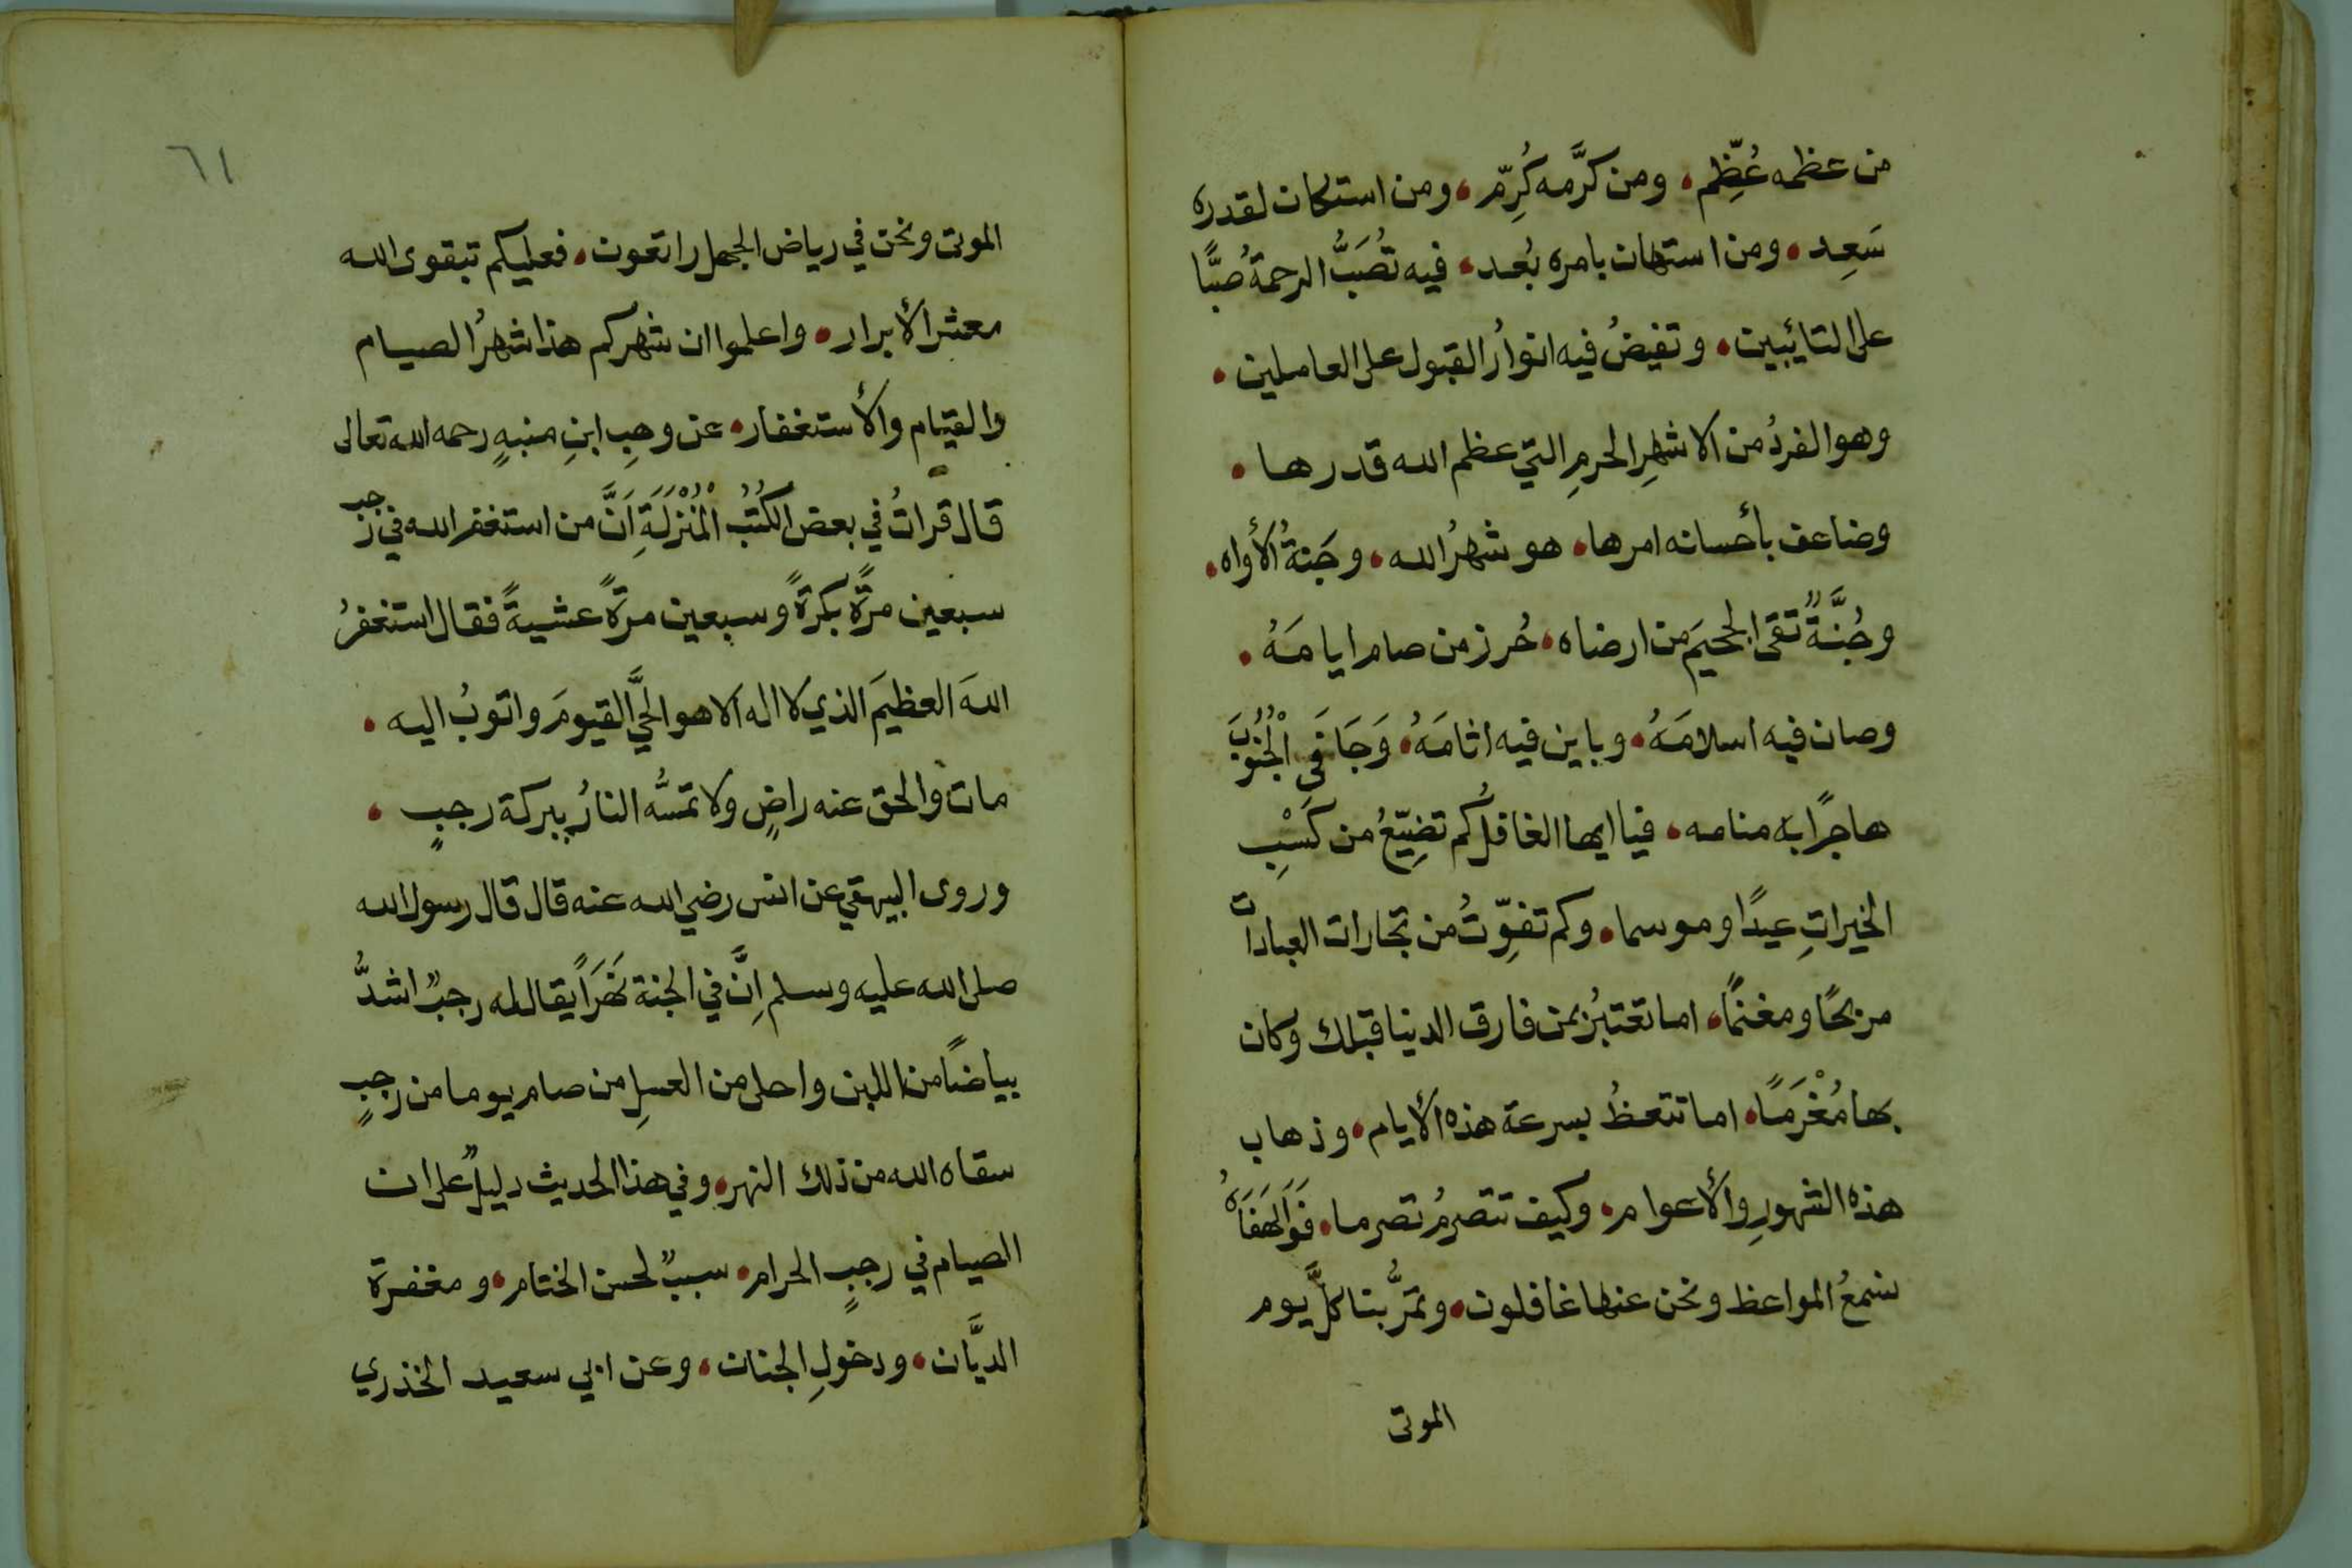 من عظمه عُظِّم، ومن كرَّمه كُرِّم، ومن استكان لقدره
سَعِد، ومن استهان بامره بُعد، فيه تُصَبُّ الرحمةُ صبًّا
على التايبين، وتفيضُ فيه انوارُ القبول على العاملين،
وهو الفردُ من الاشهرِ الحرمِ التي عظم الله قدرها،
وضاعف بأحسانه امرها، هو شهرُ الله، وجَنةُ الأواه،
وجُنَّةٌ تقى الجحيمَ من ارضاه، حُرز من صام ايامَهُ،
وصان فيه اسلامَهُ، وباين فيه اثامَهُ، وَجَافَى الْجُنُوبَ
هاجرًا به منامه، فيا ايها الغافلُ كم تضِيّعُ من كَسْبِ
الخيراتِ عيدًا وموسما، وكم تفوِّتُ من تجارات العبادات
مربحًا ومغنمًا، اما تعتبرُ بمن فارق الدنيا قبلك وكان
بها مُغْرَمًا، اما تتعظُ بسرعة هذه الأيام، وذهاب
هذه الشهورِ والأعوام، وكيف تتصرمُ تصرما، فَوَالَهَفَاهُ
نسمعُ المواعظ ونحن عنها غافلون، وتمرُّ بنا كلَّ يوم
الموتى
٦١
الموتى ونحن في رياض الجهل راتعون، فعليكم بتقوى الله
معشر الأبرار، واعلموا ان شهركم هذا شهرُ الصيام
والقيام والأستغفار، عن وهبِ ابنِ منبهٍ رحمه الله تعالى
قال قراتُ في بعض الكُتُبِ الْمُنْزَلَةِ اَنَّ من استغفر الله في رجب
سبعين مرَّةً بكرةً وسبعين مرةً عشيةً فقال استغفرُ
اللهَ العظيمَ الذي لا اله الا هو الحيَّ القيومَ واتوبُ اليه،
مات والحق عنه راضٍ ولا تمسُّه النارُ ببركة رجبٍ،
وروى البيهقي عن انس رضي الله عنه قال قال رسول الله
صلى الله عليه وسلم اِنَّ في الجنة نَهَرًا يقال له رجبٌ اشدُّ
بياضًا من اللبن واحلى من العسلِ من صام يوما من رجبٍ
سقاه الله من ذلك النهر، وفي هذا الحديث دليلٌ على ان
الصيام في رجبٍ الحرام، سببٌ لحسن الختام، ومغفرة
الديَّان، ودخولِ الجنات، وعن ابي سعيد الخذري